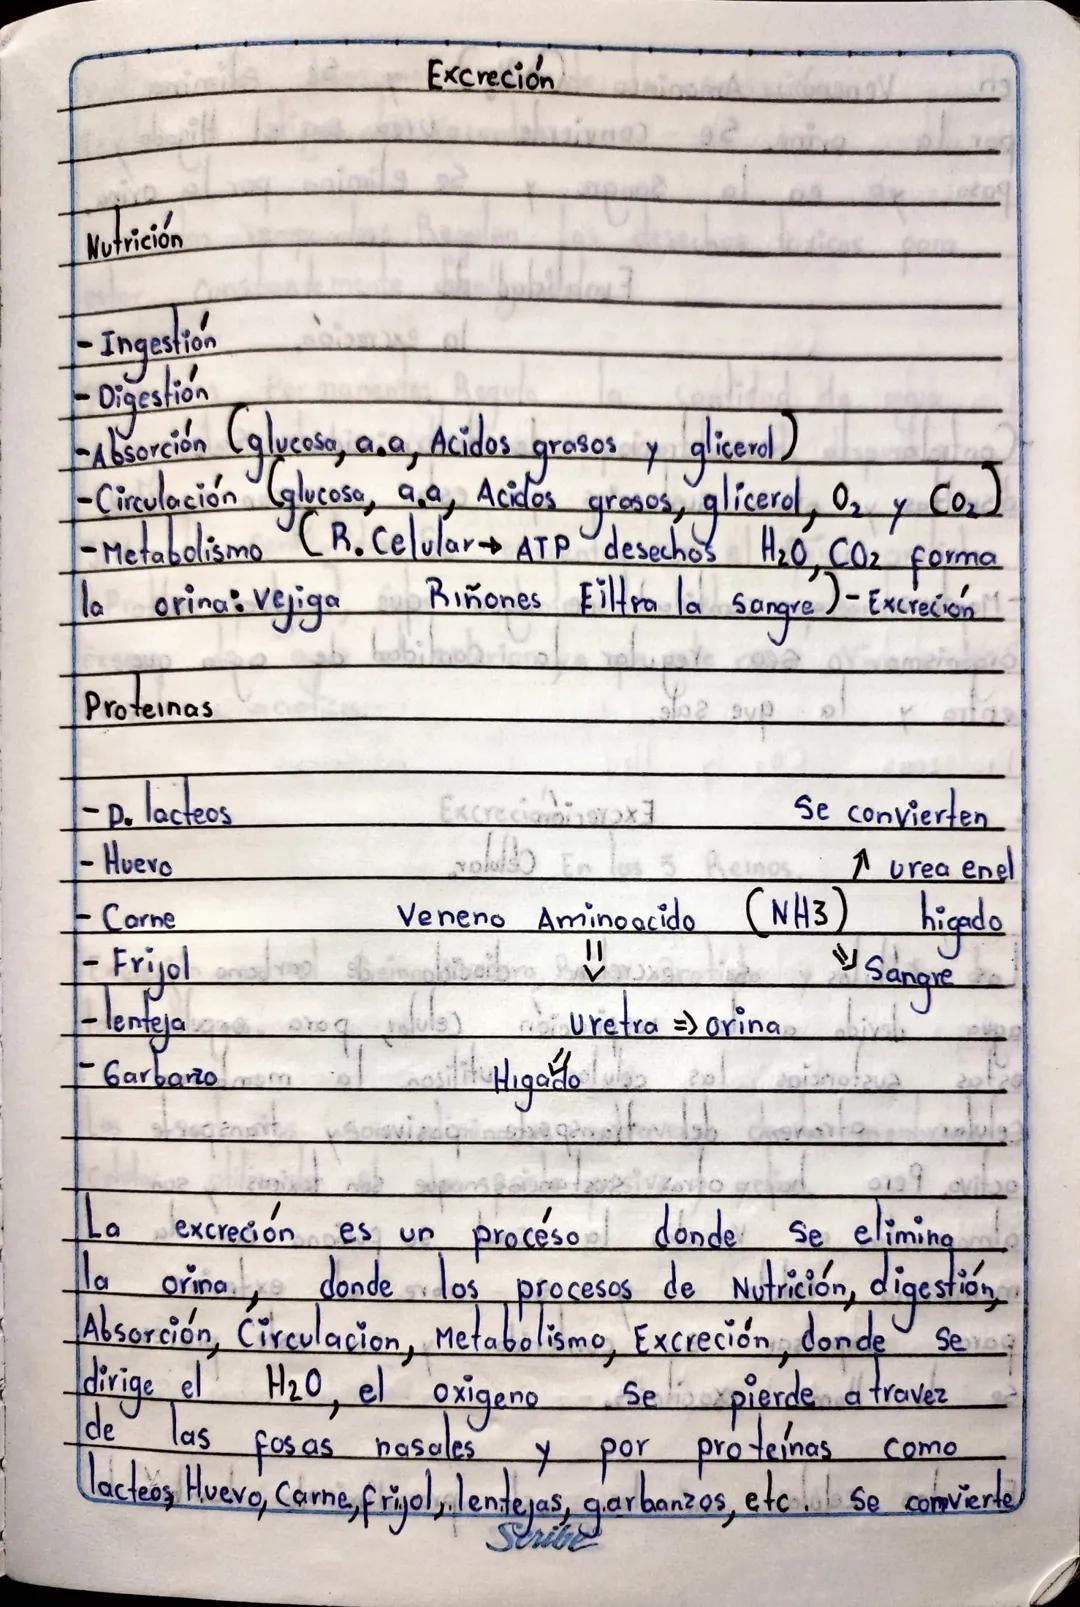 Excreción
Nutrición
- Ingestión
- Digestión
- Absorción (glucosa, a.a, Acidos grasos y glicerol)
- Circulación (glucosa, a.a, Acidos grasos, glicerol, O2 y CO2)
- Metabolismo (R. Celular → ATP desechos H2O, CO2 forma
la orina: vejiga Riñones Filtra la sangre) - Excreción
Proteinas
- p. lacteos Se convierten
- Huevo ↑ urea enel
- Carne Veneno Aminoacido (NH3) higado
- Frijol ⇓ ⇘ Sangre
- lenteja uretra ⇒ orina
- Garbanzo Higado ⇙
La excreción es un procéso donde se elimina
la orina, donde los procesos de Nutrición, digestión,
Absorción, Circulacion, Metabolismo, Excreción, donde se
dirige el H2O, el oxigeno se pierde a travez
de las fosas nasales y por proteínas como
lacteos, Huevo, Carne, frijol, lentejas, garbanzos, etc. Se convierte
Scribe